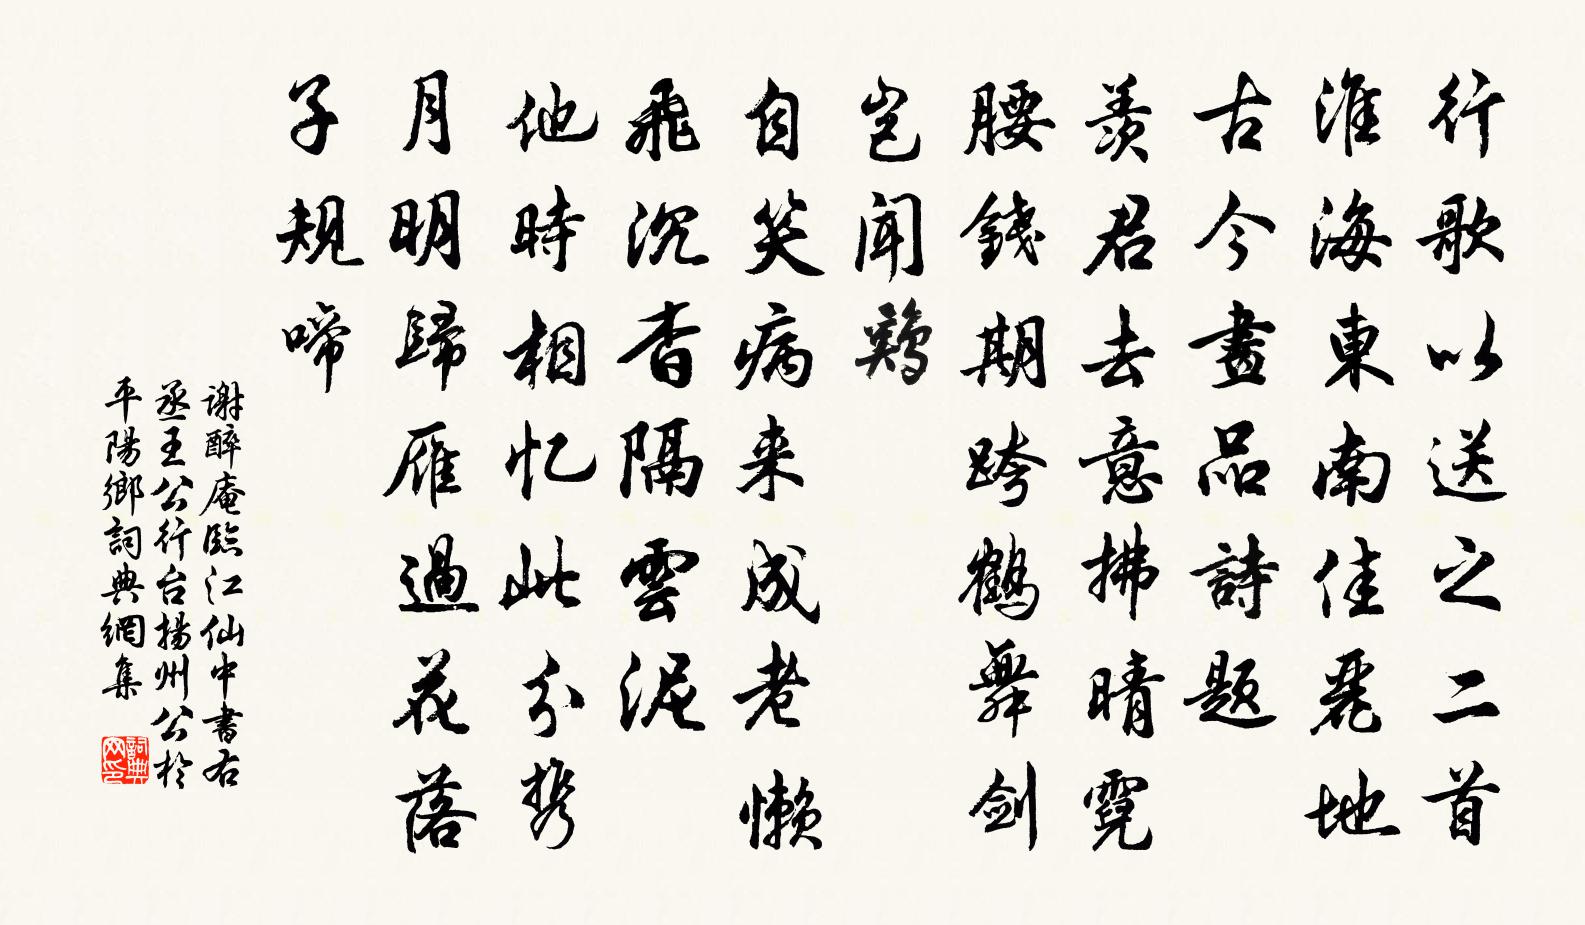 行歌以送之二首
淮海東南佳麗地
古今畫品詩題
羨君去意拂晴霓
腰錢期跨鶴舞剑
豈聞鷄
自笑病来成老懒
飛沉杳隔雲泥
他時相忆此分携
月明歸雁過花落
子規啼
谢醉庵臨江仙中書右
丞王公行台揚州公於
平陽鄉詞典網集
詞典网印